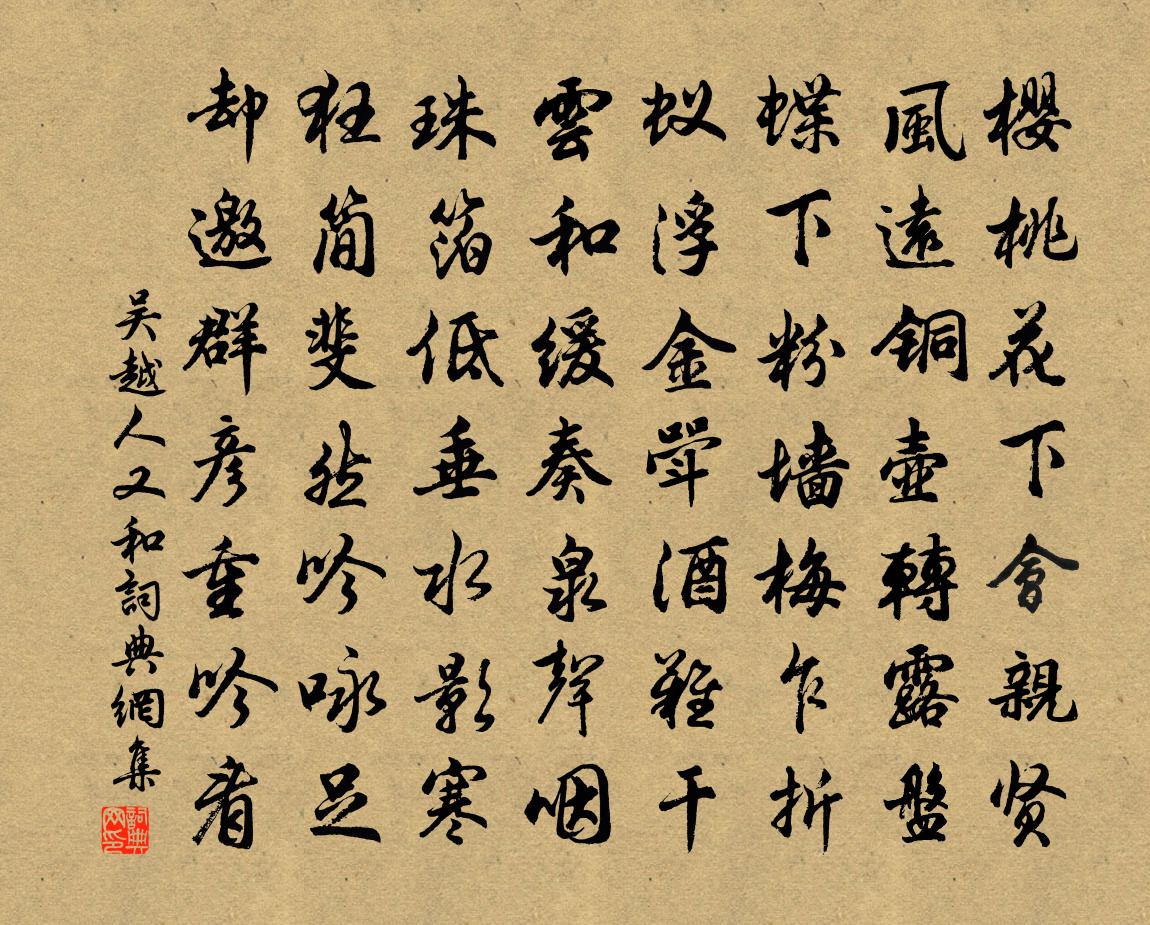 櫻桃花下會親贤
風遠銅壺轉露盤
蝶下粉墙梅乍折
蚁浮金斝酒難干
雲和缓奏泉聲咽
珠箔低垂水影寒
狂简斐然吟咏足
却邀群彦重吟看
吴越人又和詞典網集
詞典网印